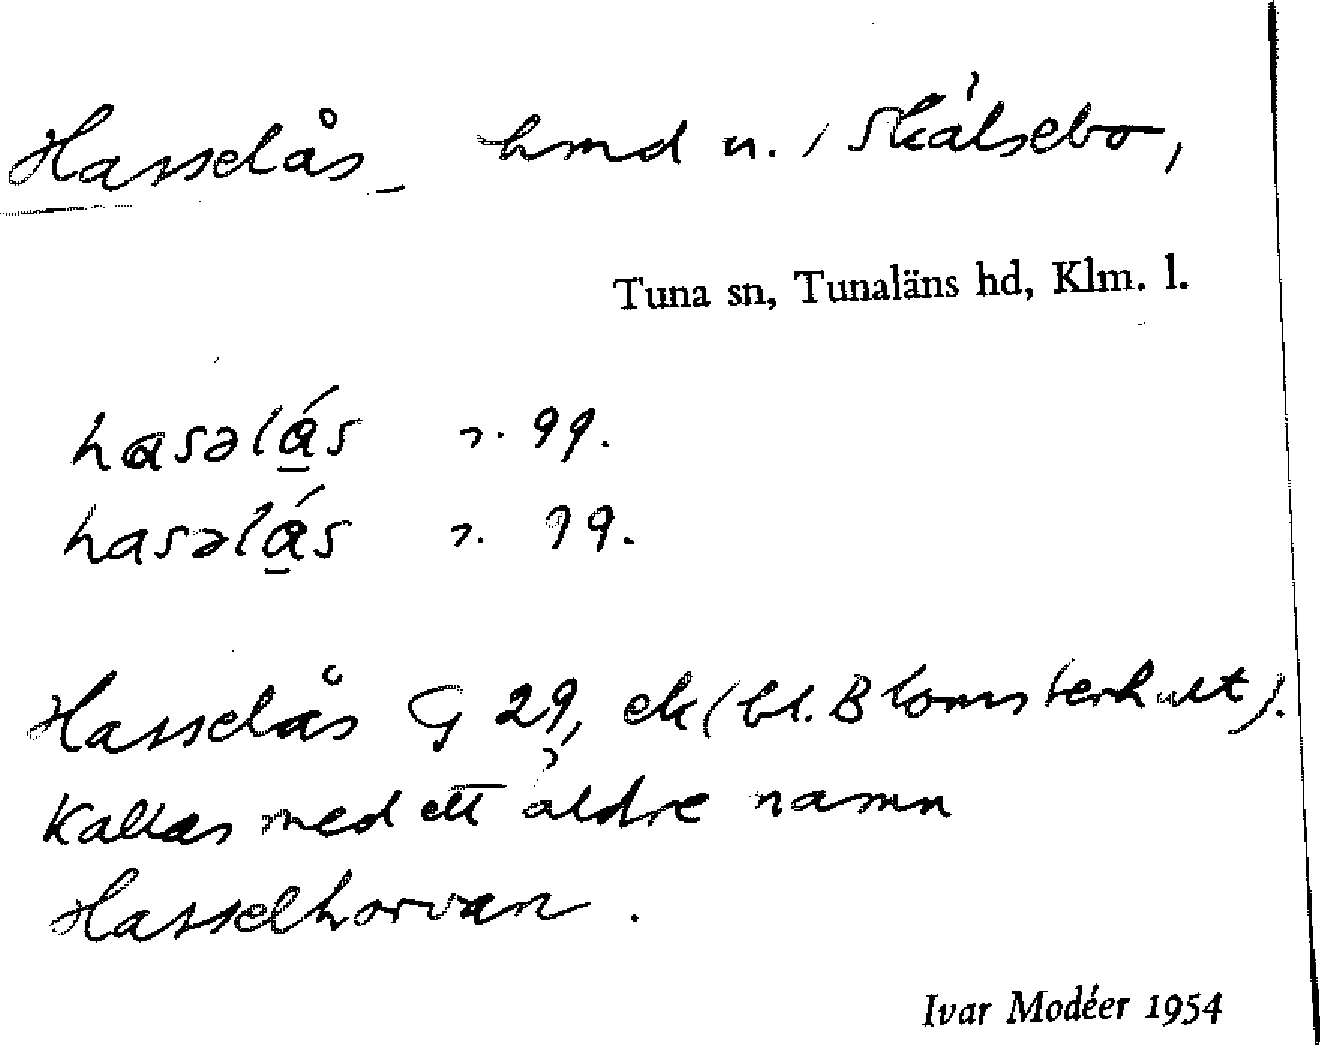 Hasselås hmd u. Skälsebo,
Tuna sn, Tunaläns hd, Klm. l.
hasəlás 99.
hasəlás 99.
Hasselås G 29, ek (bl. Blomsterhult).
Kallas med ett äldre namn
Hasselhorvan.
Ivar Modéer 1954